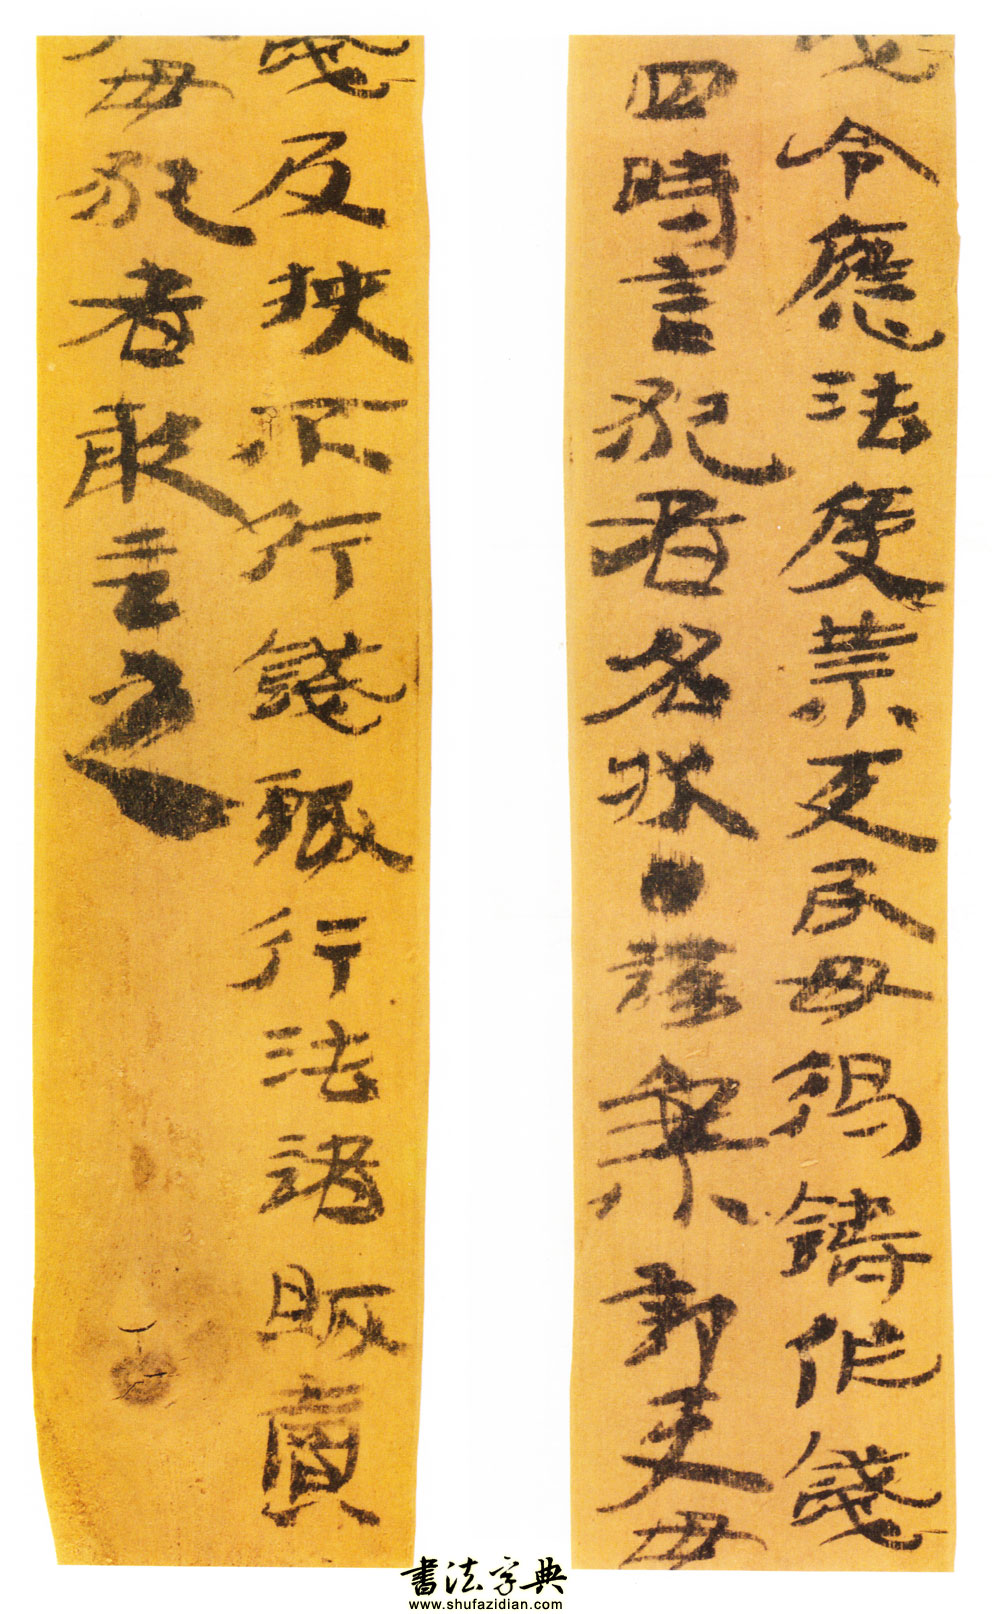 令應法度禁吏民毋得鑄作錢
四時言犯者名狀●謹案部吏毋
錢及挾不行錢輒行法諸販賣
毋犯者敢言之
書法字典
www.shufazidian.com